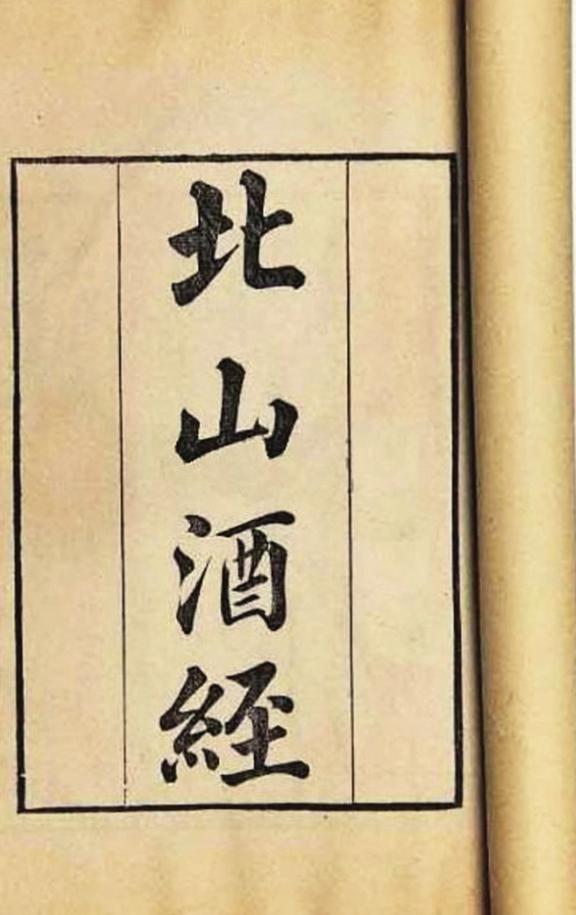 北山酒經